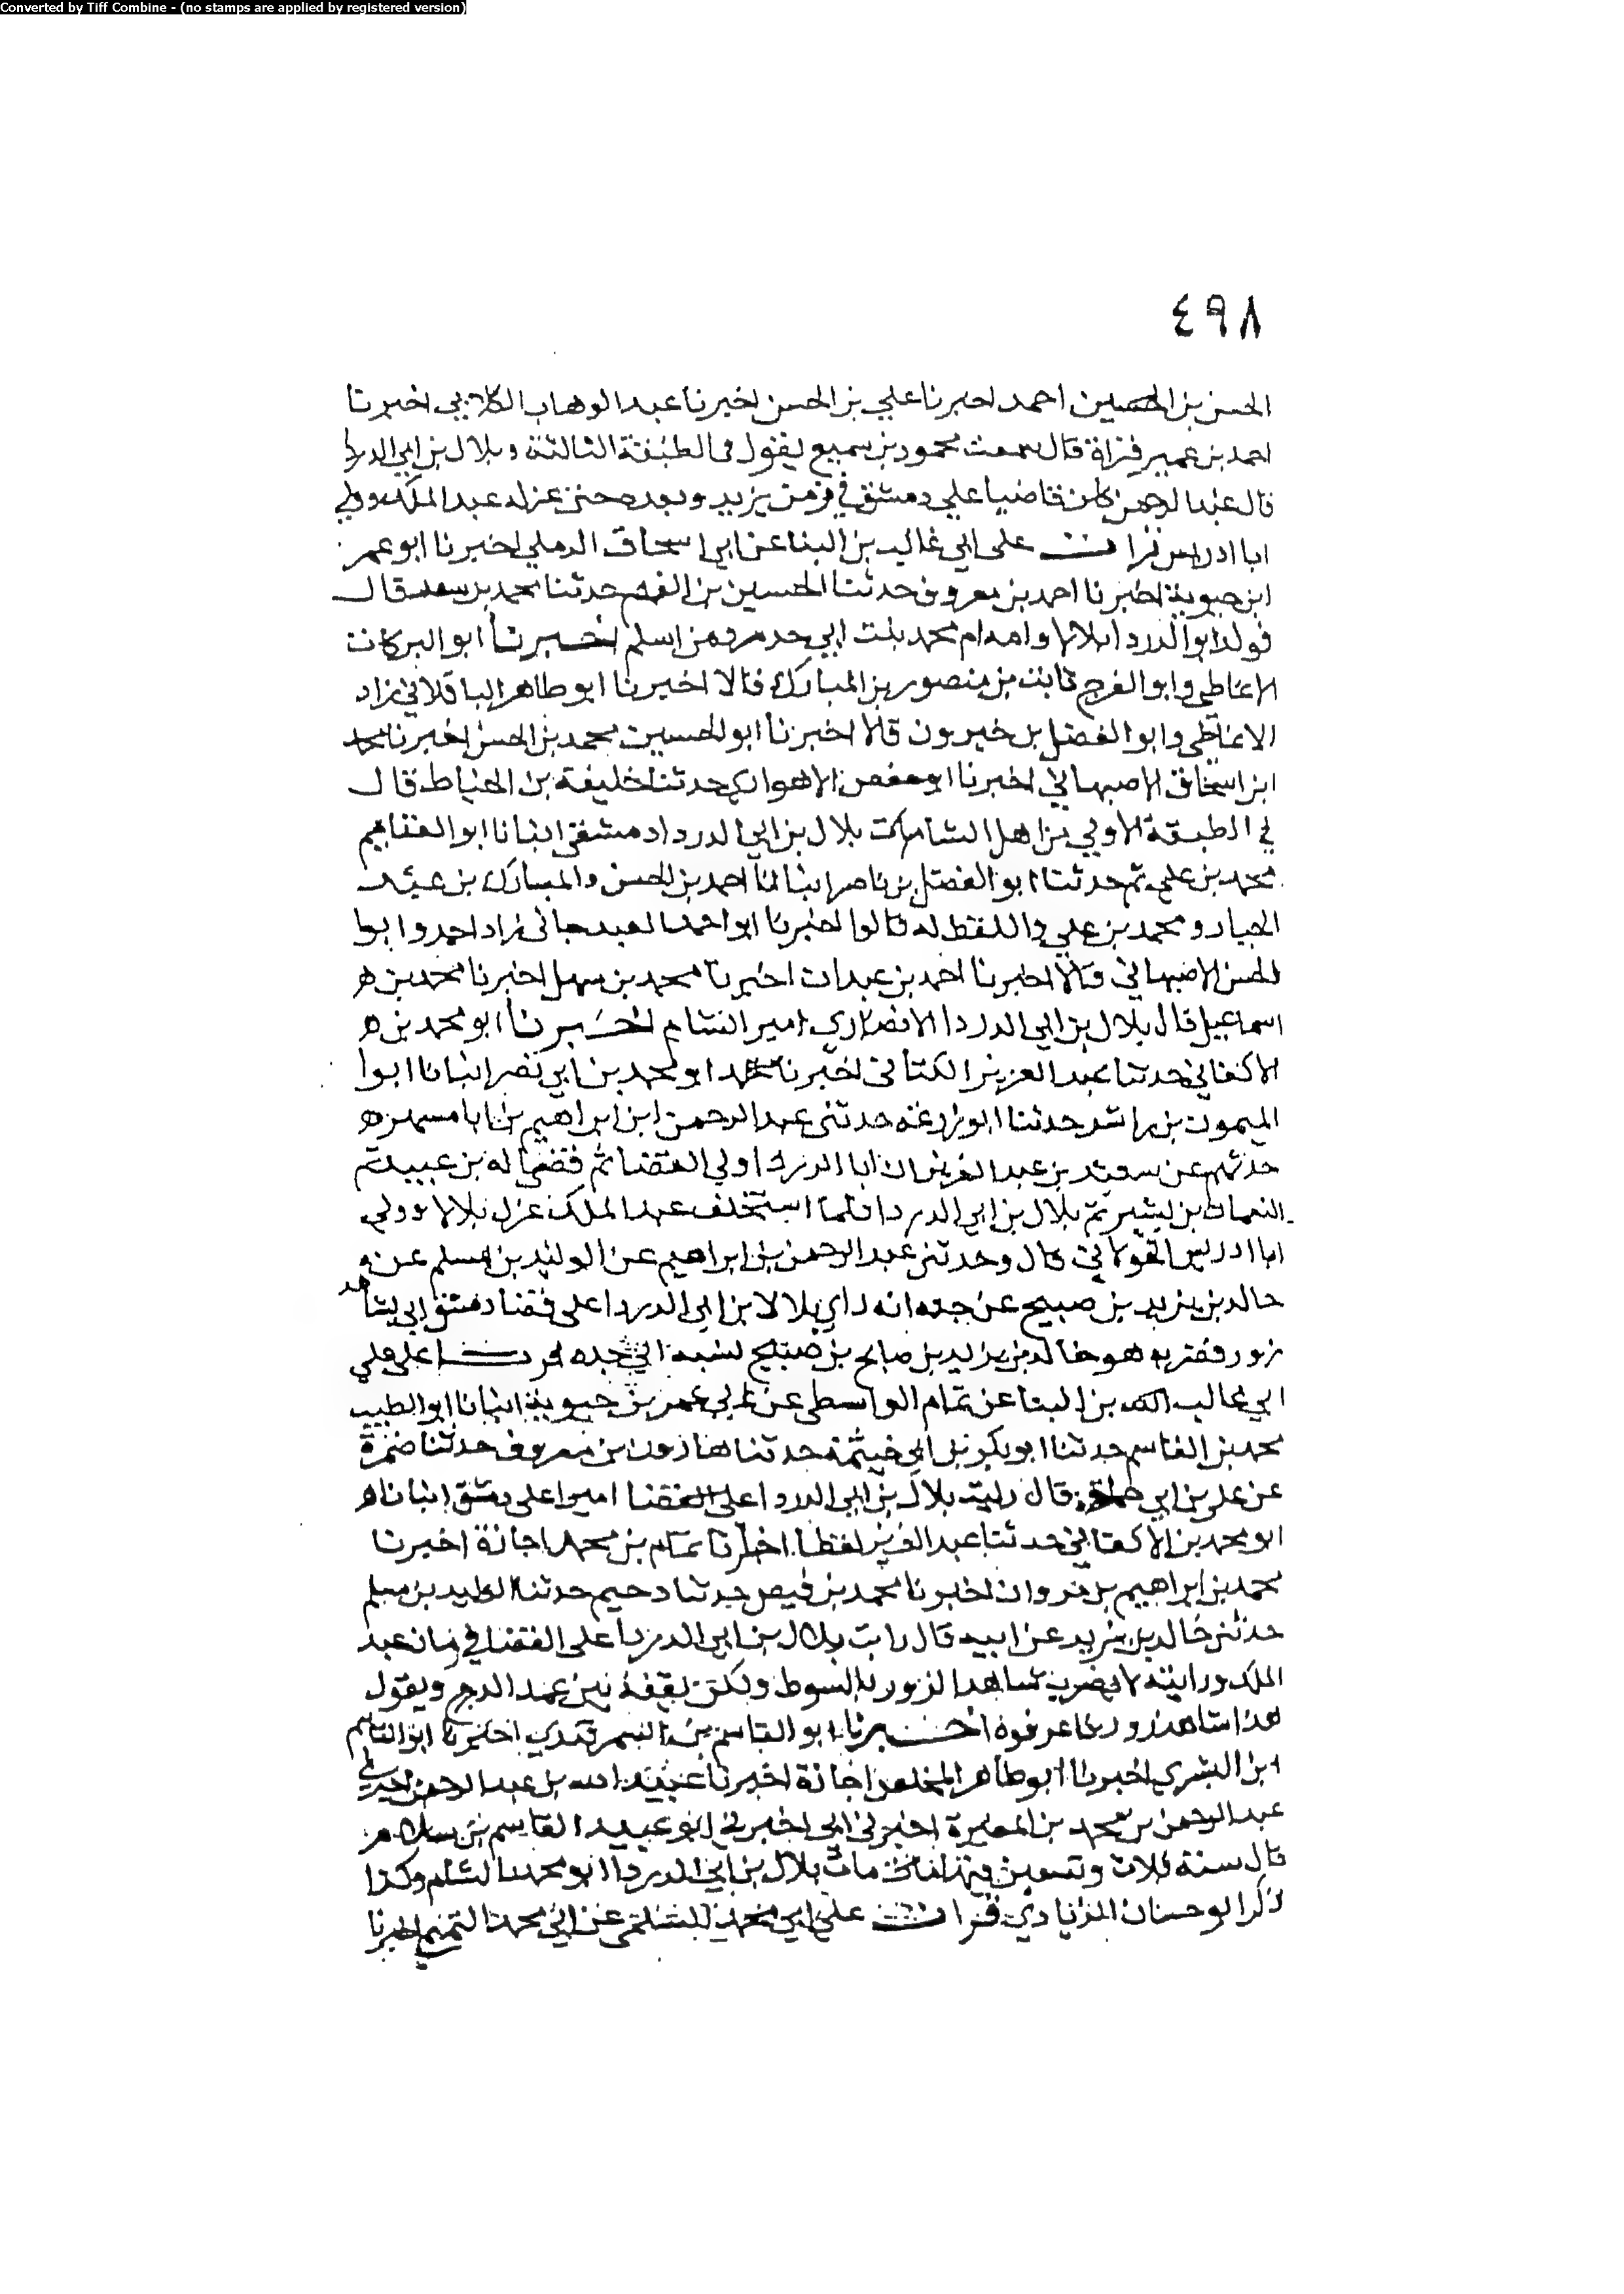 Converted by Tiff Combine - (no stamps are applied by registered version)
٤٩٨
الحسن بن الحسين احمد احبرنا علي بن الحسن اخبرنا عبد الوهاب الكلابي اخبرنا
احمد بن عمير قراة قال سمعت محمود بن سميع يقول في الطبقة الثالثة وبلال بن ابي الدردا
قال عبد الرحمن كان قاضيا علي دمشق في زمن يزيد وبعده حتى عزله عبد الملك وولي
ابا ادريس قرات على ابي غالب بن البنا عن ابي اسحاق الرملي اخبرنا ابو عمر
ابن حيوية اخبرنا احمد بن معروف حدثنا الحسين بن الفهم حدثنا محمد بن سعد قال
فولد ابو الدردا بلالا وامه ام محمد بنت ابي حدرد من اسلم اخبرنا ابو البركات
الانماطي وابو الفرج ثابت بن منصور بن المبارك قالا اخبرنا ابو طاهر الباقلاني زاد
الانماطي وابو الفضل بن خيرون قالا اخبرنا ابو الحسين محمد بن الحسن اخبرنا محمد
ابن اسحاق الاصبهاني اخبرنا ابو حفص الاهوازي حدثنا خليفة بن الخياط قال
في الطبقة الاولي من اهل الشامات بلال بن ابي الدردا دمشقى انبانا ابو الغنايم
محمد بن علي ثم حدثنا ابو الفضل بن ناصر انبانا احمد بن الحسن والمبارك بن عبد
الجبار ومحمد بن علي واللفظ له قالوا اخبرنا ابو احمد العبدجاني زاد احمد وابوا
الحسن الاصبهاني قالا اخبرنا احمد بن عبدان اخبرنا محمد بن سهل اخبرنا محمد بن ه
اسماعيل قال بلال بن ابي الدردا الانصاري امير الشام اخبرنا ابو محمد بن ه
الاكفاني حدثنا عبد العزيز الكتاني اخبرنا ابو محمد بن ابي نصر انبانا ابوا
الميمون بن راشد حدثنا ابو زرعه حدثنى عبد الرحمن ابن ابراهيم ان ابا مسهر ه
حدثهم عن سعيد بن عبد العزيز ان ابا الدردا ولي القضا ثم فضاله بن عبيد ثم
النعمان بن بشير ثم بلال بن ابي الدردا فلما استخلف عبد الملك عزل بلالا وولي
ابا ادريس الخولاني قال وحدثني عبد الرحمن بن ابراهيم عن الوليد بن مسلم عن و
خالد بن يزيد بن صبيح عن جده انه راي بلالا بن ابي الدردا على قضا دمشق ابي بشاهد
زور فضربه هو خالد بن يزيد بن صالح بن صبيح نسبه الي جده قرات على علي
ابي غالب بن البنا عن تمام الواسطى عن ابي عمر بن حيوية انبانا ابو الطيب
محمد بن القاسم حدثنا ابو بكر بن ابي خيثمة حدثنا هارون بن معروف حدثنا ضمرة
عن علي بن ابي حملة قال رايت بلال بن ابي الدردا على القضا اميرا على دمشق انبانا ه
ابو محمد بن الاكفاني حدثنا عبد العزيز لفظا اخبرنا تمام بن محمد اجازة اخبرنا
محمد بن ابراهيم بن مروان اخبرنا محمد بن فيض حدثنا دحيم حدثنا الوليد بن مسلم
حدثني خالد بن يزيد عن ابيه قال رايت بلال بن ابي الدردا على القضا في زمان عبد
الملك ورايته لا يضرب شاهد الزور بالسوط ولكن يقفه بين عمد الدرج ويقول
هذا شاهد زور فاعرفوه اخبرنا ابو القاسم بن السمرقندي اخبرنا ابو القاسم
ابن البسري اخبرنا ابو طاهر المخلص اجازة اخبرنا عبيد الله بن عبد الرحمن اخبرني
عبد الرحمن بن محمد بن المغيرة اخبرني ابي اخبرني ابو عبيد القاسم بن سلام
قال سنة ثلاث وتسعين فيها مات بلال بن ابي الدردا ابو محمد بالشام وكذا
ذكر ابو حسان الزيادي قرات على ابي محمد السلمى عن ابي محمد التميمي اخبرنا